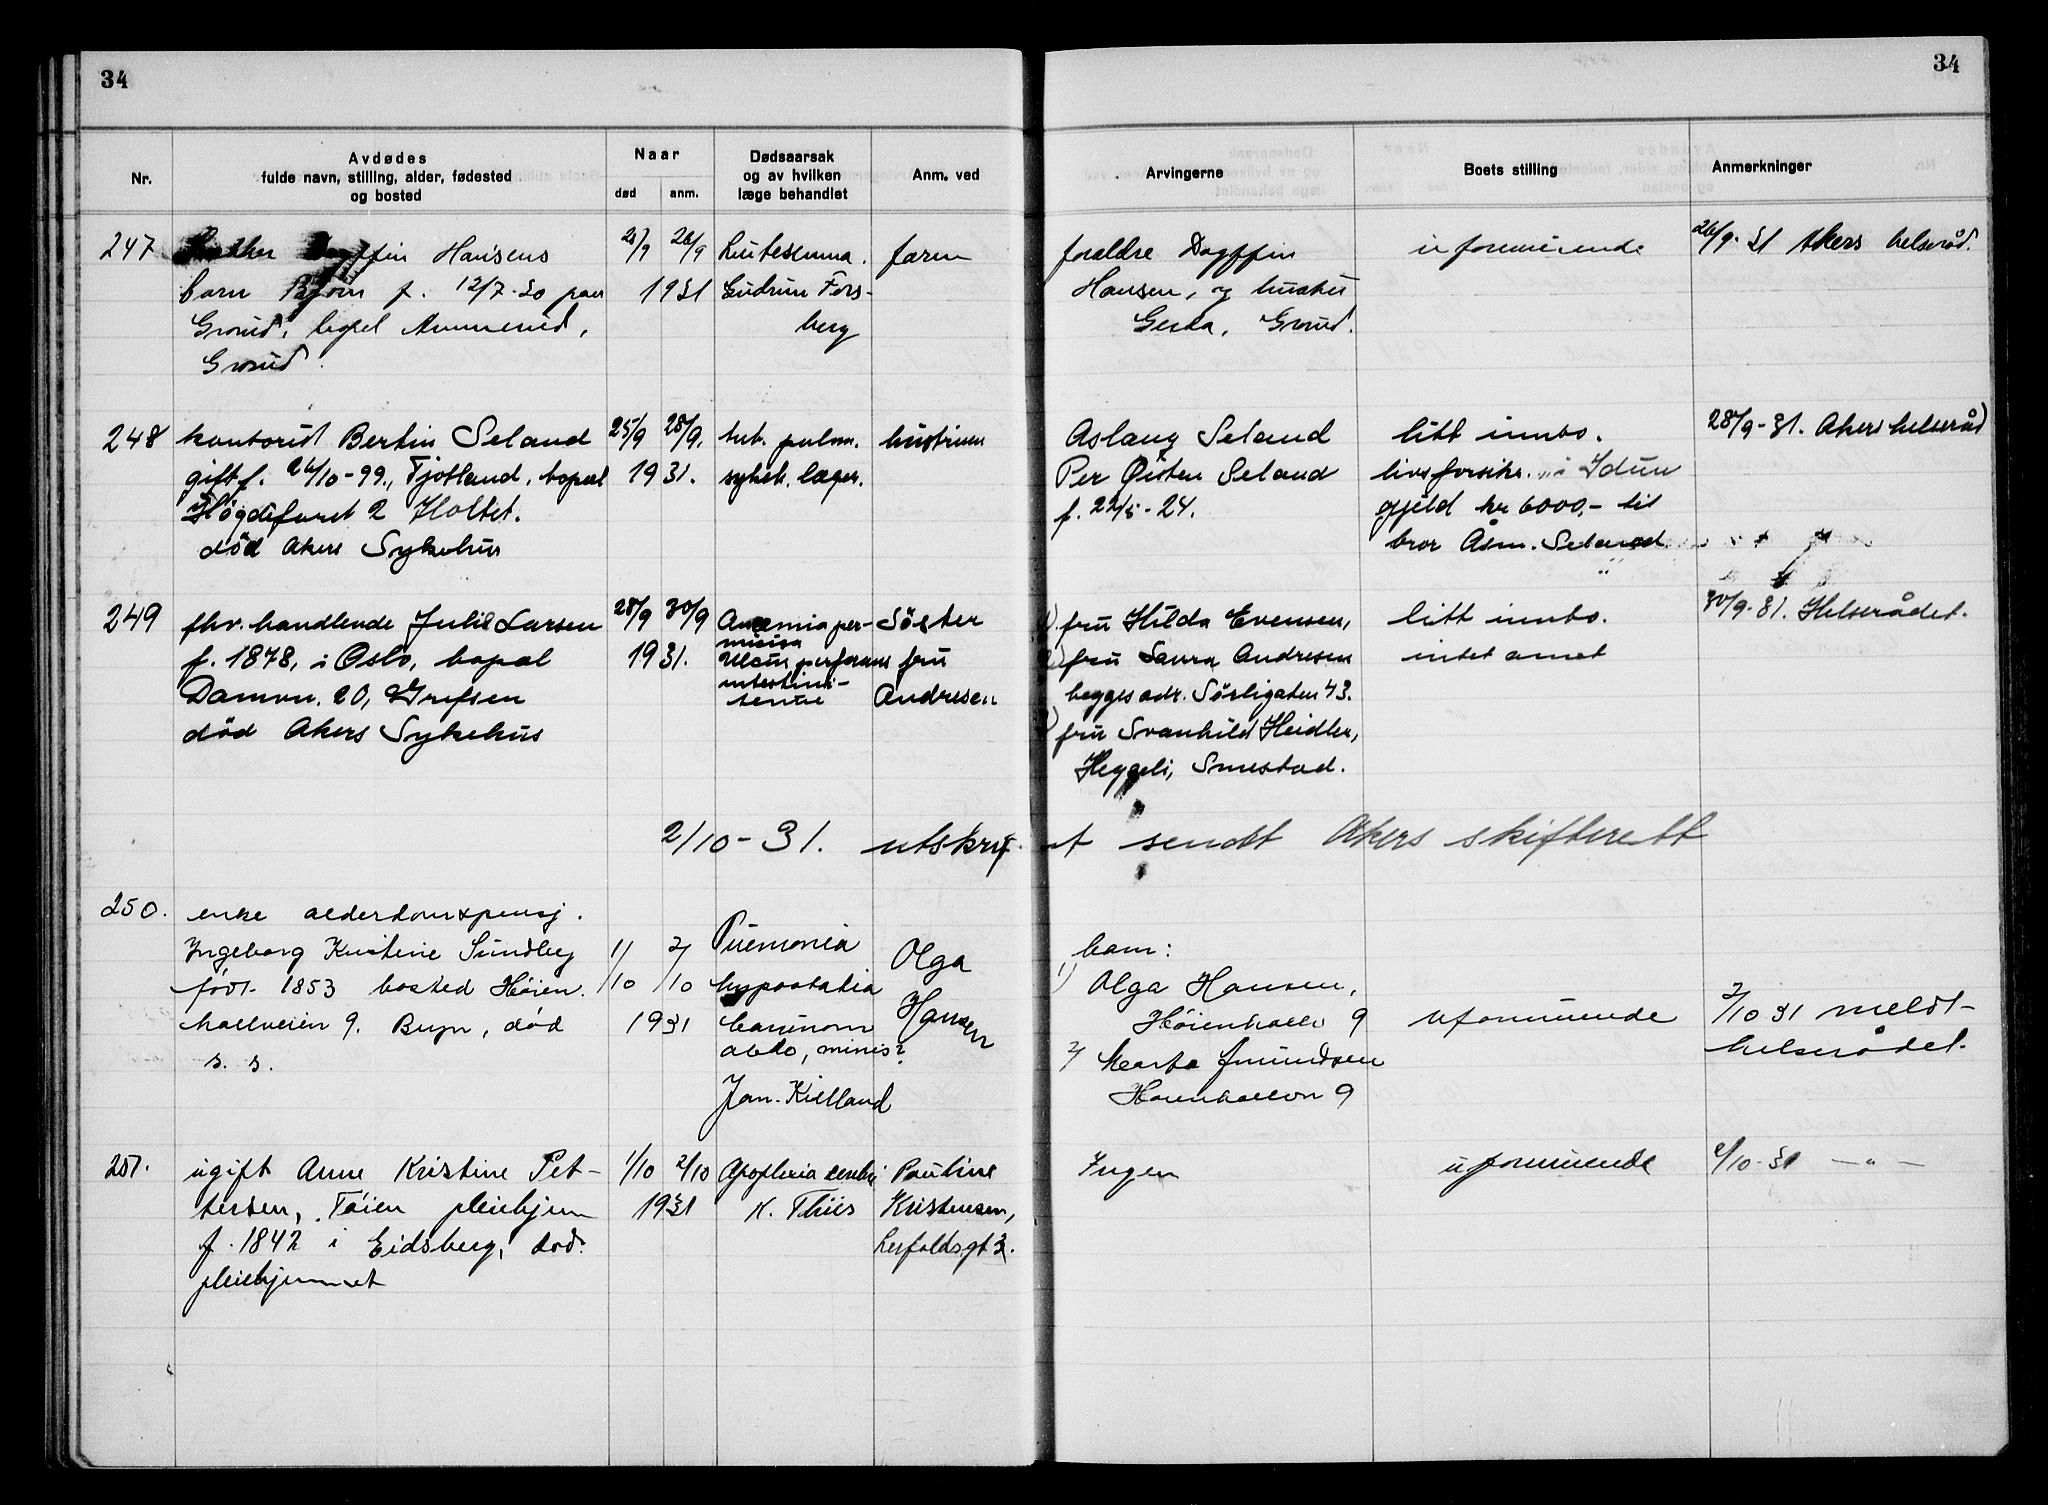 34
34
Nr.
Avdødes
fulde navn, stilling, alder, fødested
og bosted
Naar
død
anm.
Dødsaarsak
og av hvilken
læge behandlet
Anm. ved
Arvingerne
Boets stilling
Anmerkninger
247
Dagffin Hansens
barn Bjørn f. 12/7-30 paa
Grorud, bopel Ammerud,
Grorud.
26/9
1931
Gudrun Fors-
berg
faren
foreldre Dagffin
Hansen, og hustru
Gerda, Grorud.
uformuende
26/9-31 Akers helseråd.
248
kontorist Bertin Seland
gift f. 26/10-99, Tjotland, bopæl
Høgdefaret 2 Holtet.
død Akers Sykehus
25/9
28/9.
1931.
tub. pulm.
sykeh. læger.
hustruen
Aslaug Seland
Per Øisten Seland
f. 22/5-24.
litt innbo.
livsforsikr. i Idun
gjeld kr 6000,- til
bror Åsm. Seland
28/9-31. Akers helseråd
249
fhv. handlende Julie Larsen
f. 1878, i Oslo, bopæl
Damvn. 20, Grefsen
død Akers Sykehus
28/9
30/9
1931.
Anæmia per-
niciosa
Ulcus perforans
intestini-
tenue
Søster
fru
Andresen
1) fru Hilda Evensen,
2) fru Laura Andresen
begges adr. Sørligaten 43.
3) fru Svanhild Heidler,
Heggeli, Smestad.
litt innbo.
intet annet
30/9-31. Helserådet.
2/10-31. utskrift sendt Akers skifterett
250.
enke alderdomspensj.
Ingeborg Kristine Sundberg
født 1853 bosted Høien-
hallveien 9. Bryn, død
s. s.
1/10
2/10
1931
Pnemonia
hypostatia
Carcinom
abdo, minis?
Jan. Kielland
Olga
Hansen
barn:
1) Olga Hansen,
Høienhallv 9
2) Marta Amundsen
Høienhallvn 9
uformuende
2/10 31 meldt
helserådet.
251.
ugift Anne Kristine Pet-
tersen, Tøien pleiehjem
f. 1842 i Eidsberg, død
pleiehjemmet
1/10
2/10
1931
Apoplexia cerebri
K. Thiis
Pauline
Kristensen,
Herfoldsgt 3.
Ingen
uformuende
2/10-31 — " —